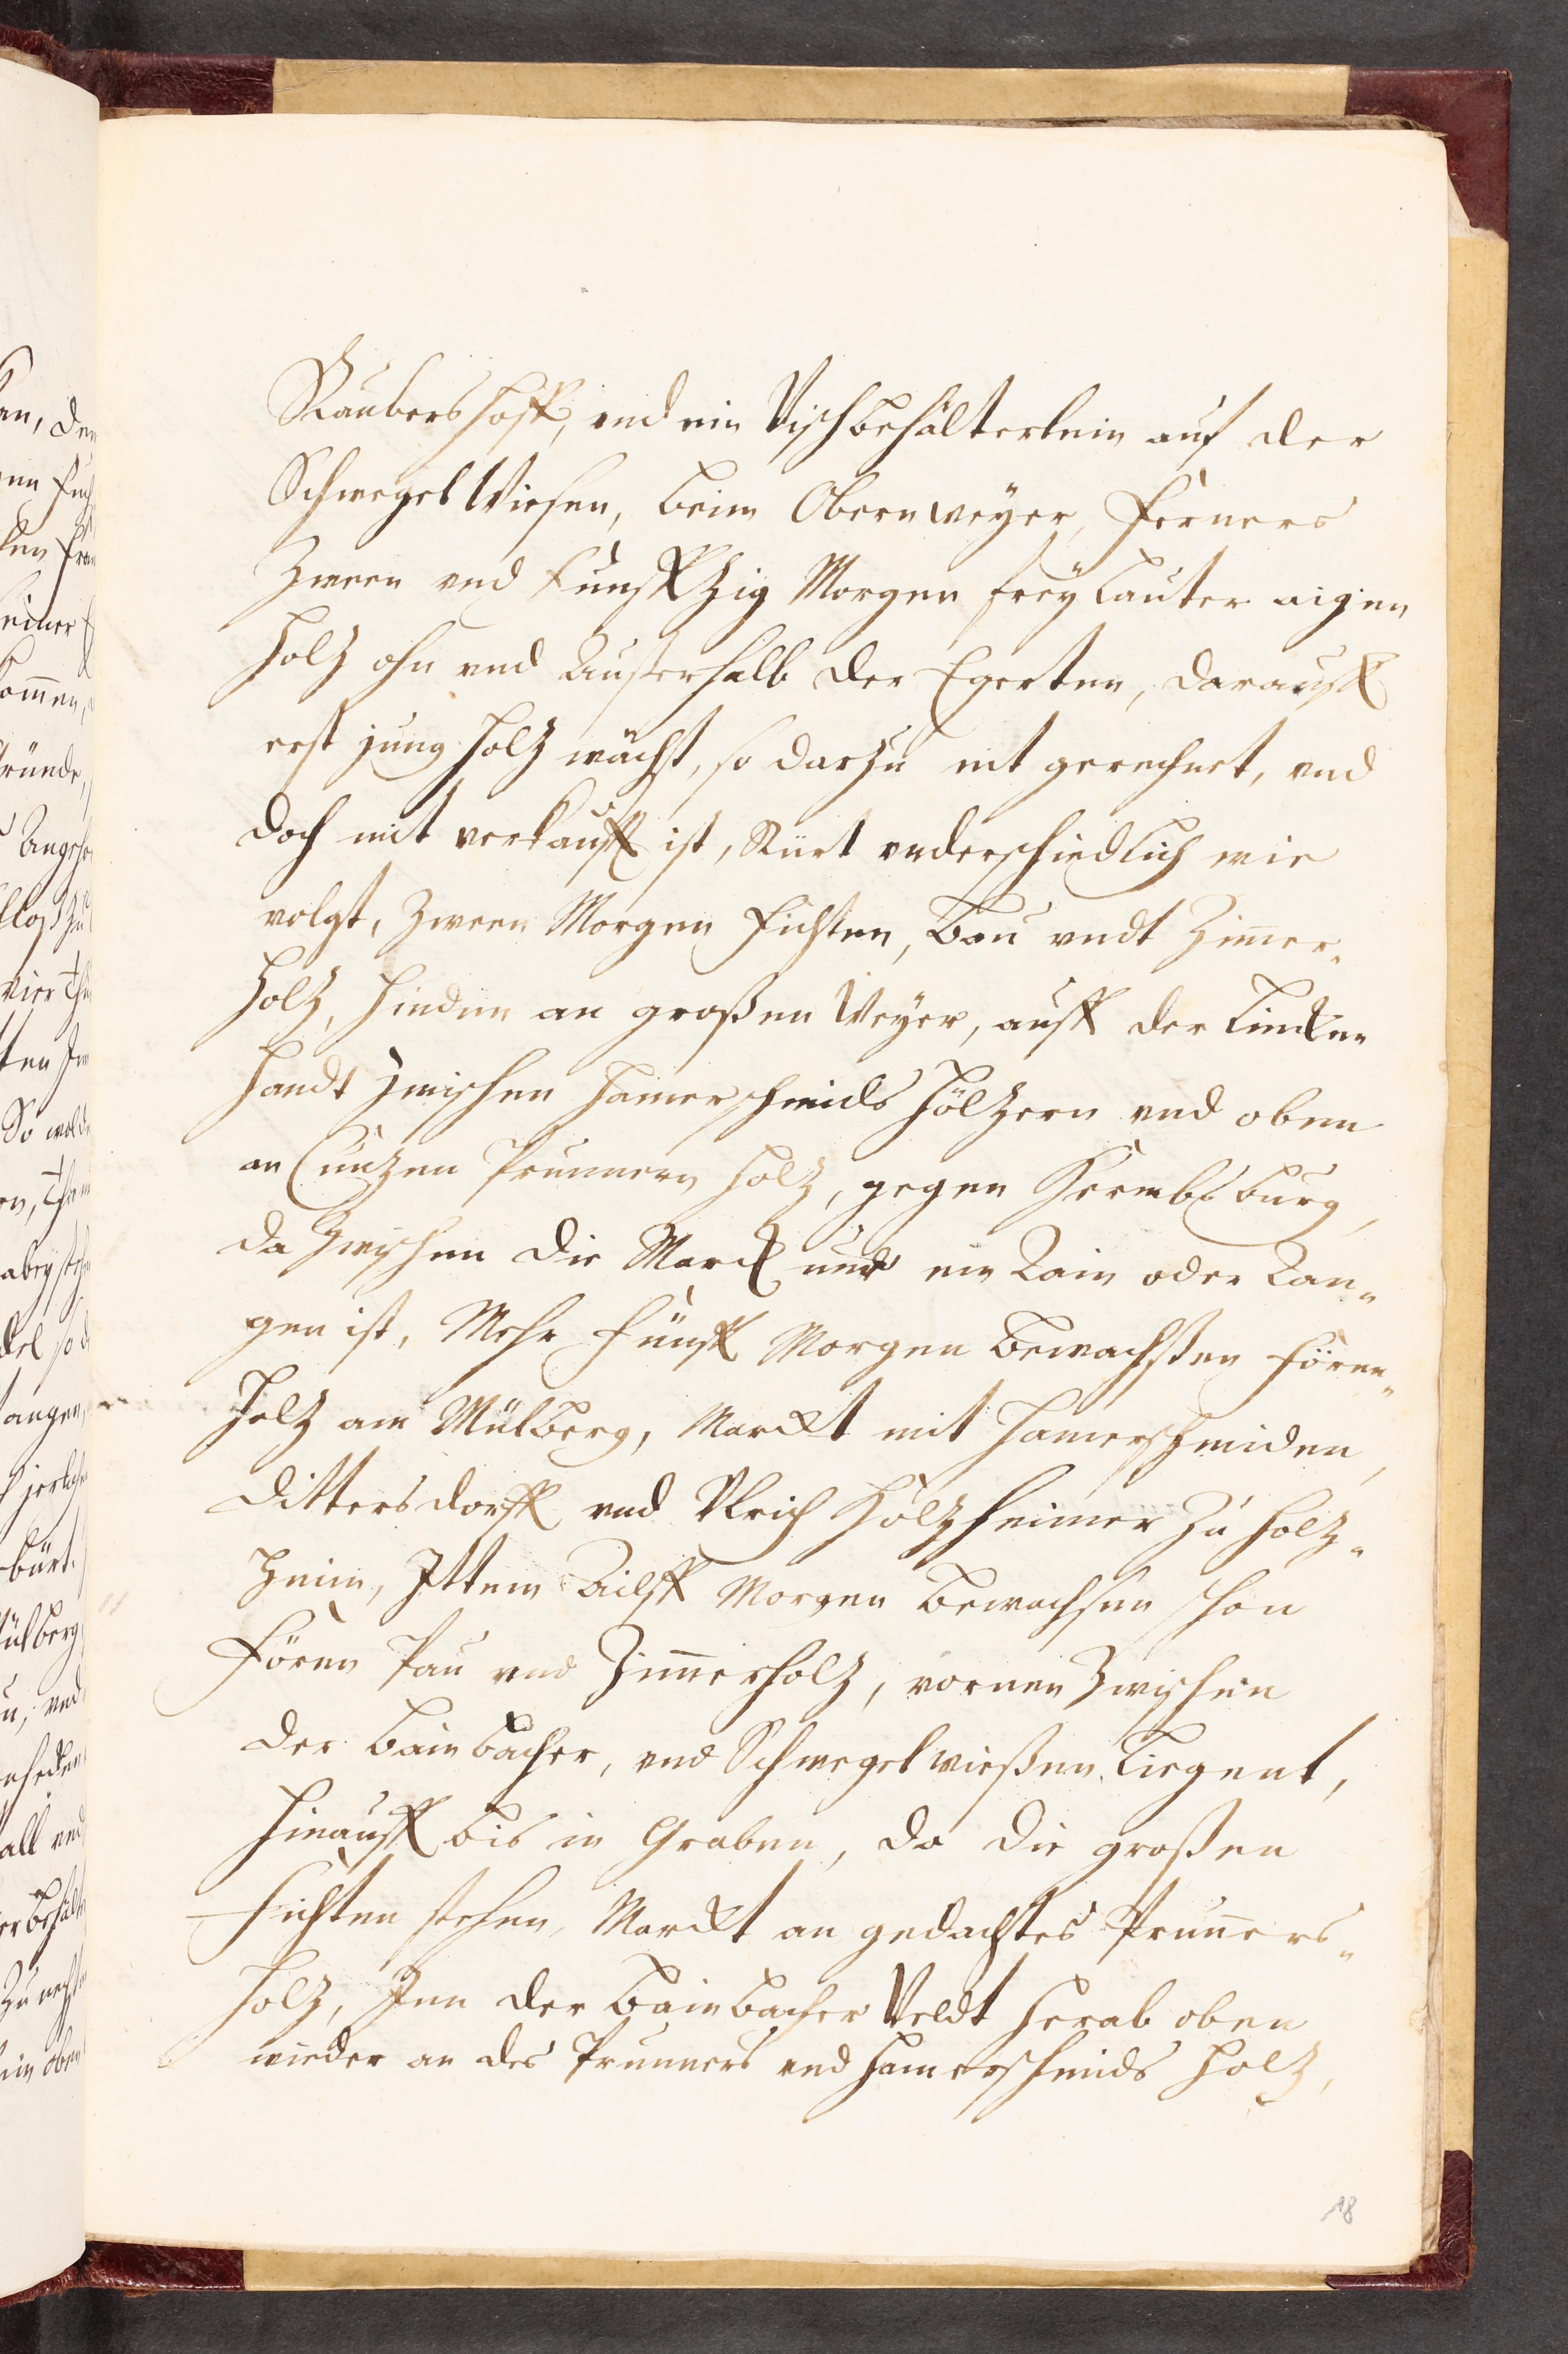 Raubershoff, vnd ein Vischbehälterlein auf der
Schwegel Wiesen, beim Obern weyer, ferners
Zween vnd funffzig Morgen freÿ lauter aigen
Holz ohn vnd Ausserhalb der Egerten, darauff
erst jung Holz wächst, so darzu nit gerechnet, vnd
doch mit verkaufft ist, Rürt vnderschiedlich wie
volgt, Zween Morgen fichten, Bau vndt Zimer-
Holz, hinden an großen Weyer, auff der Lincken
Handt zwischen Hamerschmids Hölzern vnd oben
an Cunzen Prunnern Holz, gegen Kernbßburg,
da zwischen die Marck vnd ein Rain oder Ran-
gen ist, Mehr fünff Morgen bewachßen fören-
Holz am Mülberg, Marckt mit Hamerschmiden,
Dittersdorff vnd Vlrich Holzheimer zu Holz-
heim, Ittem Ailff Morgen bewachsen schon
fören Pau vnd Zimerholz, vornen zwischen
der Bainbacher, vnd Schwegelwießen Liegent,
hinauff bis in Graben, da die großen
fichten stehen, Marckt an gedachtes Pruners-
Holz, Inn der Bainbacher Veldt herab oben
wieder an des Prunners vnd Hamerschmids Holz,
18